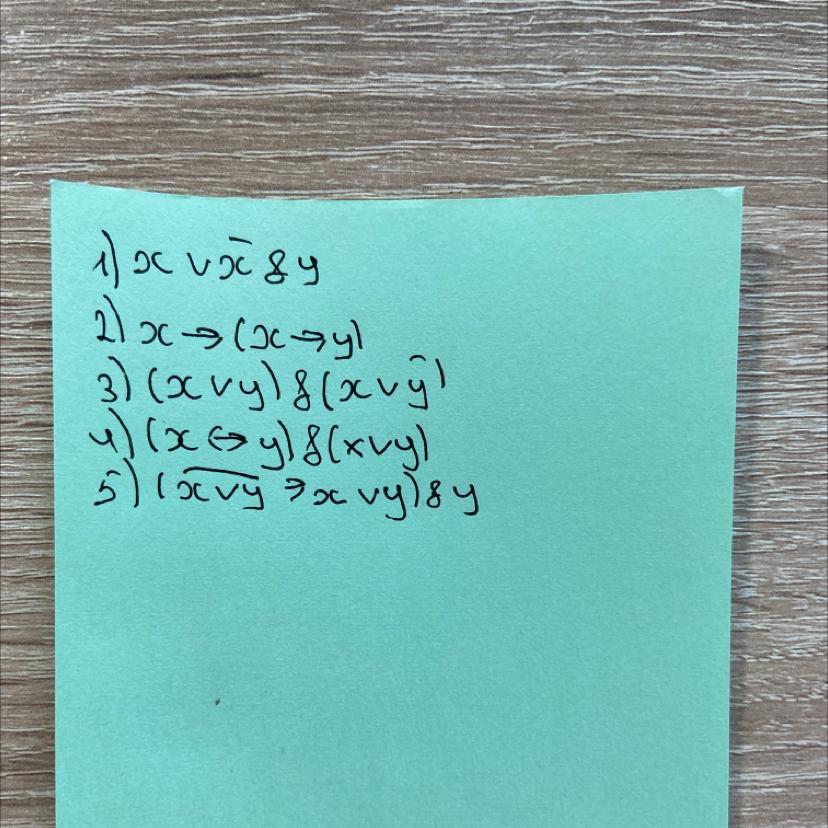 1) x ∨ x̄ & y
2) x → (x → y)
3) (x ∨ y) & (x ∨ ȳ)
4) (x ↔ y) & (x ∨ y)
5) (x̅ ̅∨̅ ̅y̅ → x ∨ y) & y